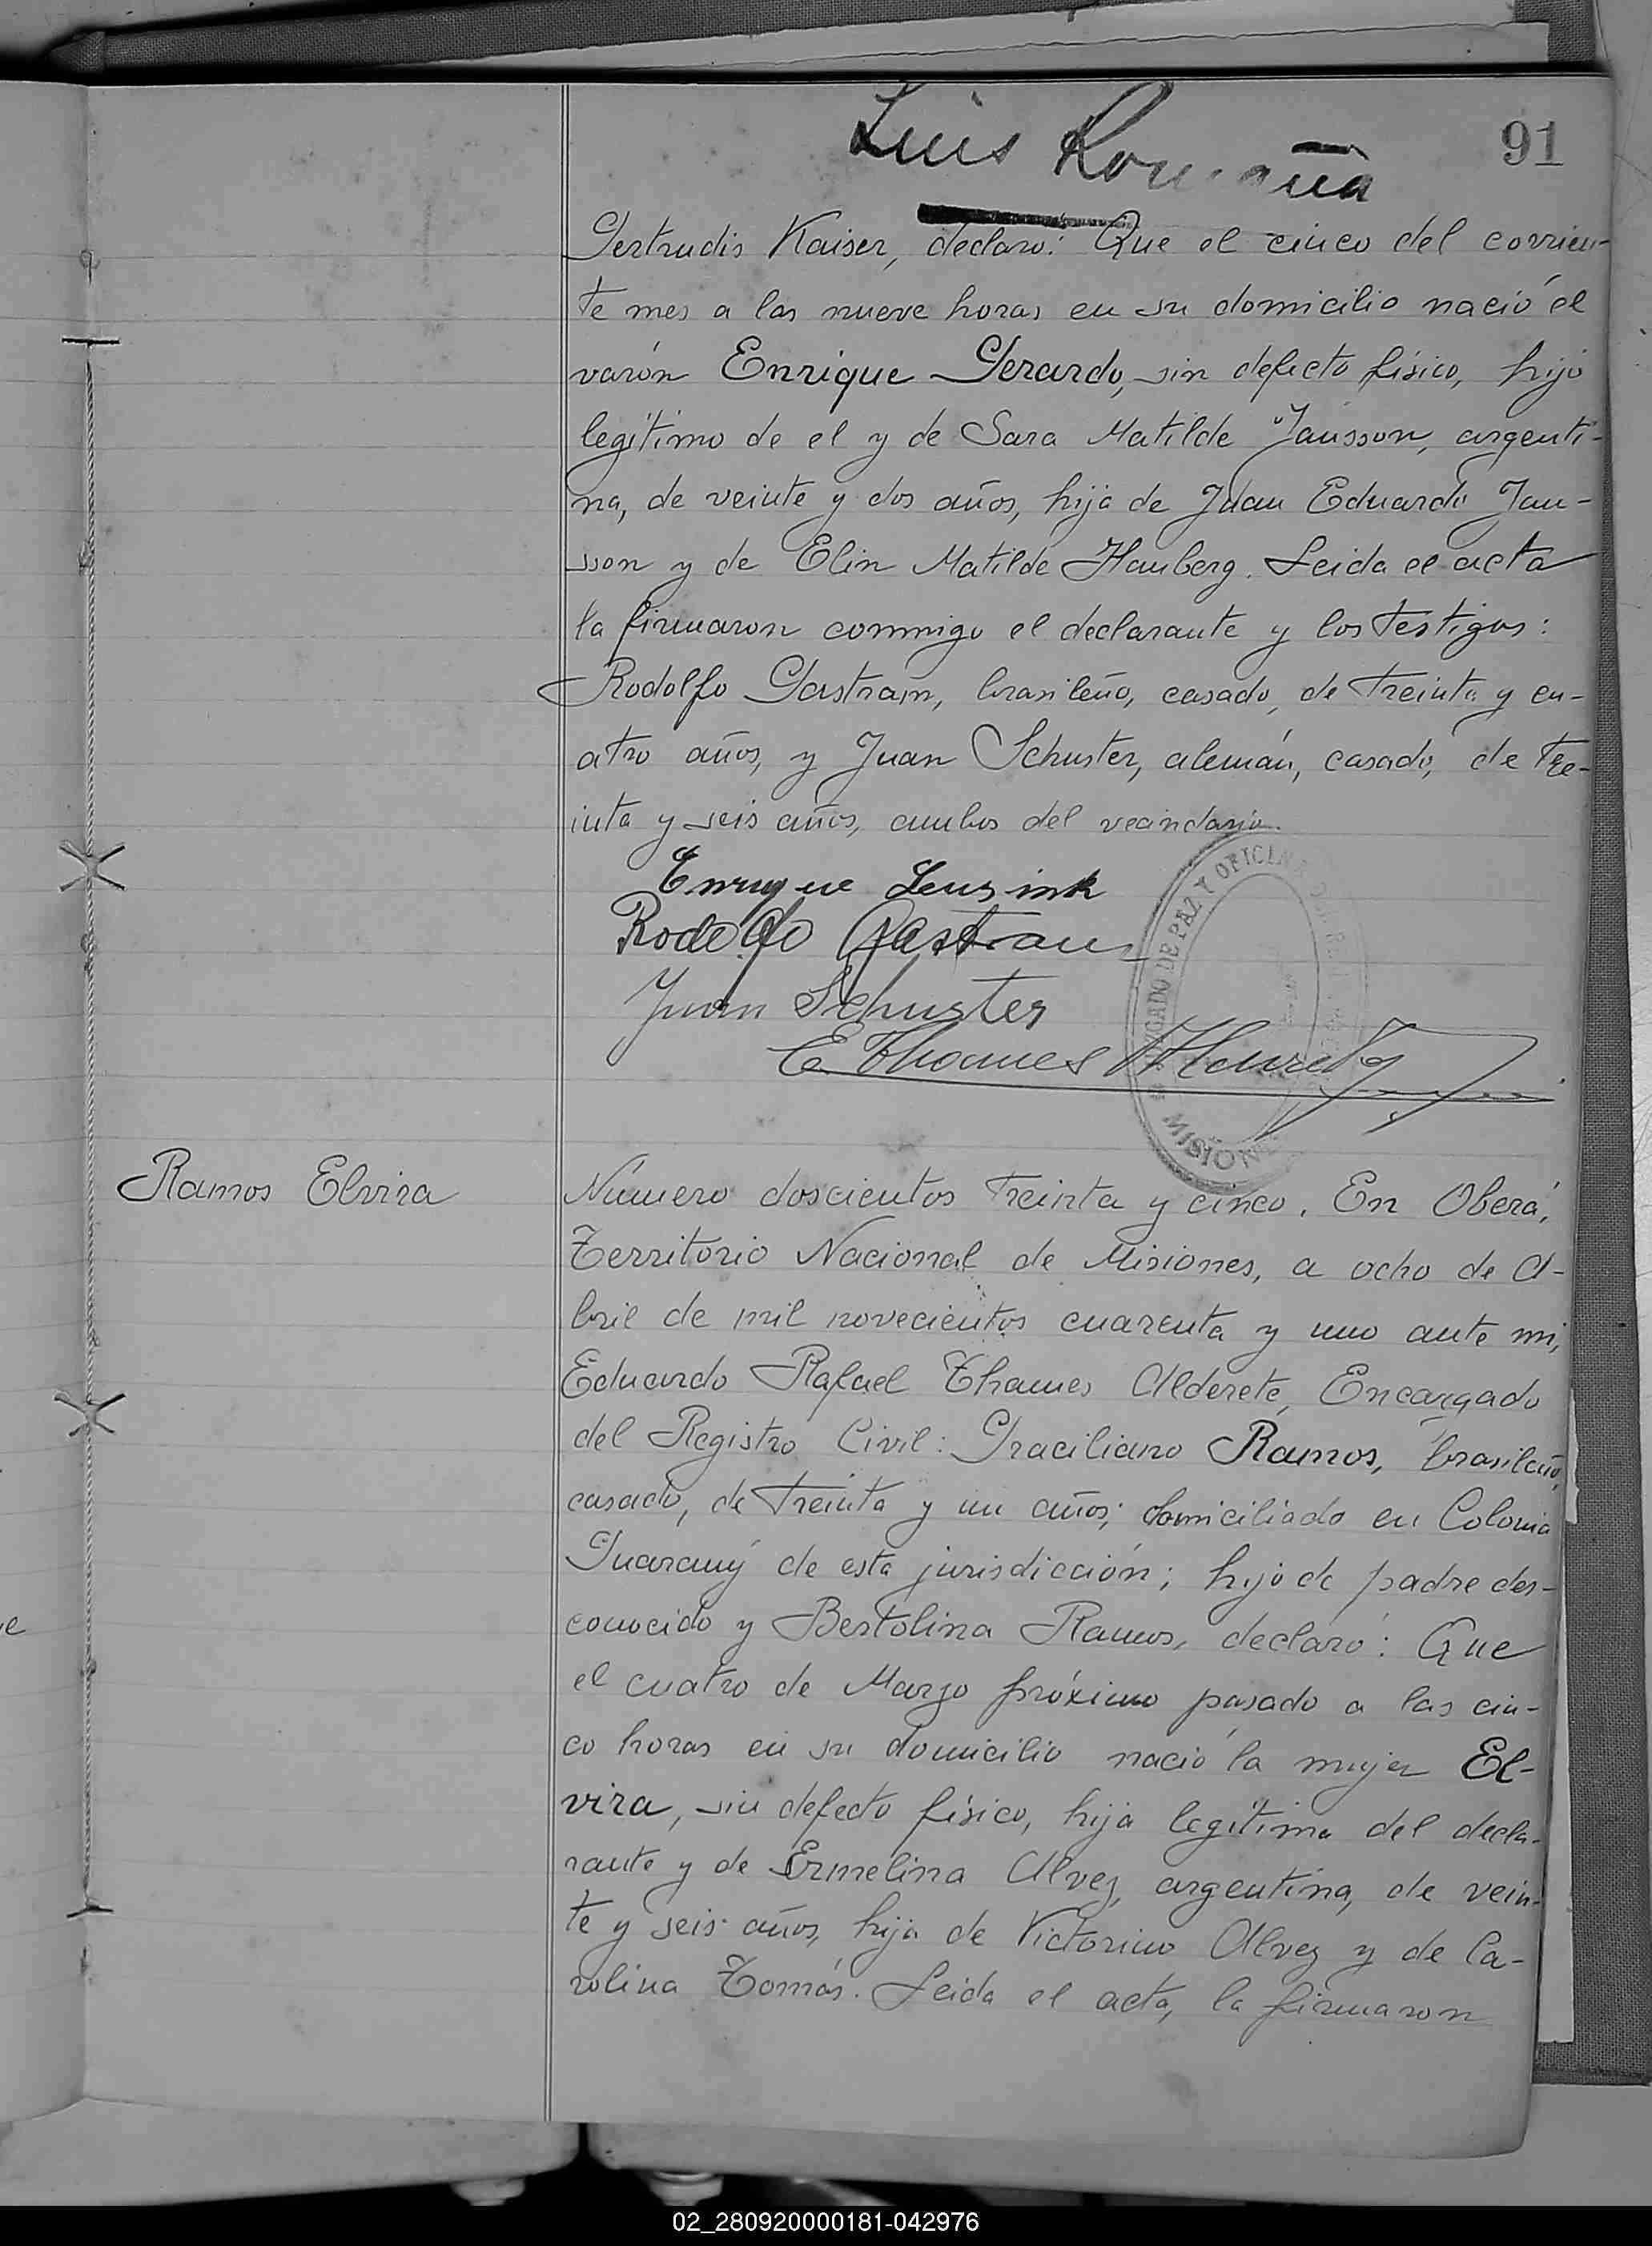 91
Luis
Gertrudis Kaiser, declaro: Que el cinco del corrien-
te mes a las nueve horas en su domicilio nació el
varón Enrique Gerardo, sin defecto físico, hijo
legítimo de el y de Sara Matilde Jansson, argenti-
na, de veinte y dos años, hija de Juan Eduardo Jan-
sson y de Elin Matilde Hamberg. Leida el acta
la firmaron conmigo el declarante y los testigos:
Rodolfo Gastram, brasileño, casado, de treinta y cu-
atro años, y Juan Schuster, alemán, casado, de tre-
inta y seis años, ambos del vecindario.
Enrique Lensink
Rodolfo Gastram
Juan Schuster
E Thames Alderete
JUZGADO DE PAZ Y OFICINA
MISIONES
Ramos Elvira
Número doscientos treinta y cinco. En Oberá,
Territorio Nacional de Misiones, a ocho de A-
bril de mil novecientos cuarenta y uno ante mi,
Eduardo Rafael Thames Alderete, Encargado
del Registro Civil: Graciliano Ramos, brasileño,
casado, de treinta y un años; domiciliado en Colonia
Guaraný de esta jurisdicción; hijo de padre des-
conocido y Bertolina Ramos, declaró: Que
el cuatro de Marzo próximo pasado a las cin-
co horas en su domicilio nació la mujer El-
vira, sin defecto físico, hija legítima del decla-
rante y de Ermelina Alvez, argentina, de vein-
te y seis años, hija de Victorino Alvez y de Ca-
rolina Tomás. Leida el acta, la firmaron
02_280920000181-042976